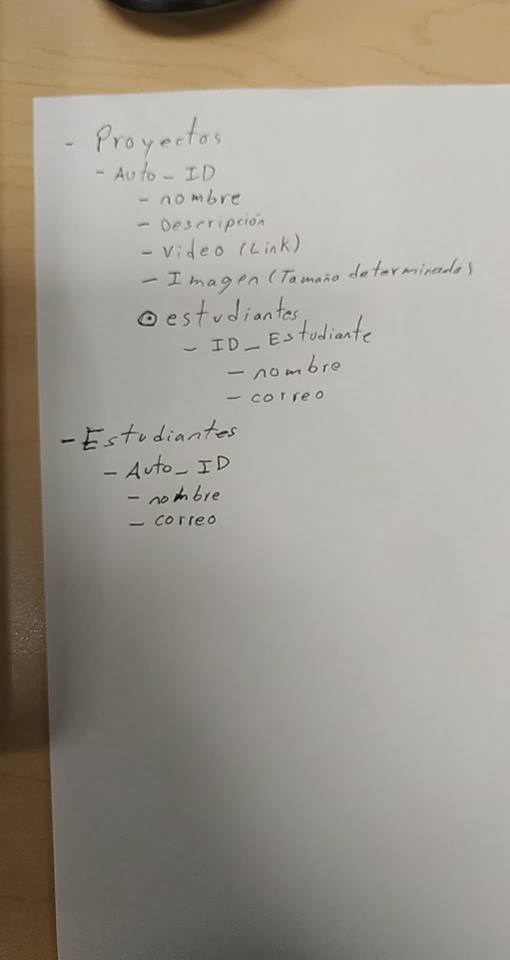 - Proyectos
- Auto - ID
- nombre
- Descripción
- Video (Link)
- Imagen (Tamaño determinado)
estudiantes
- ID_Estudiante
- nombre
- correo
- Estudiantes
- Auto_ID
- nombre
- correo